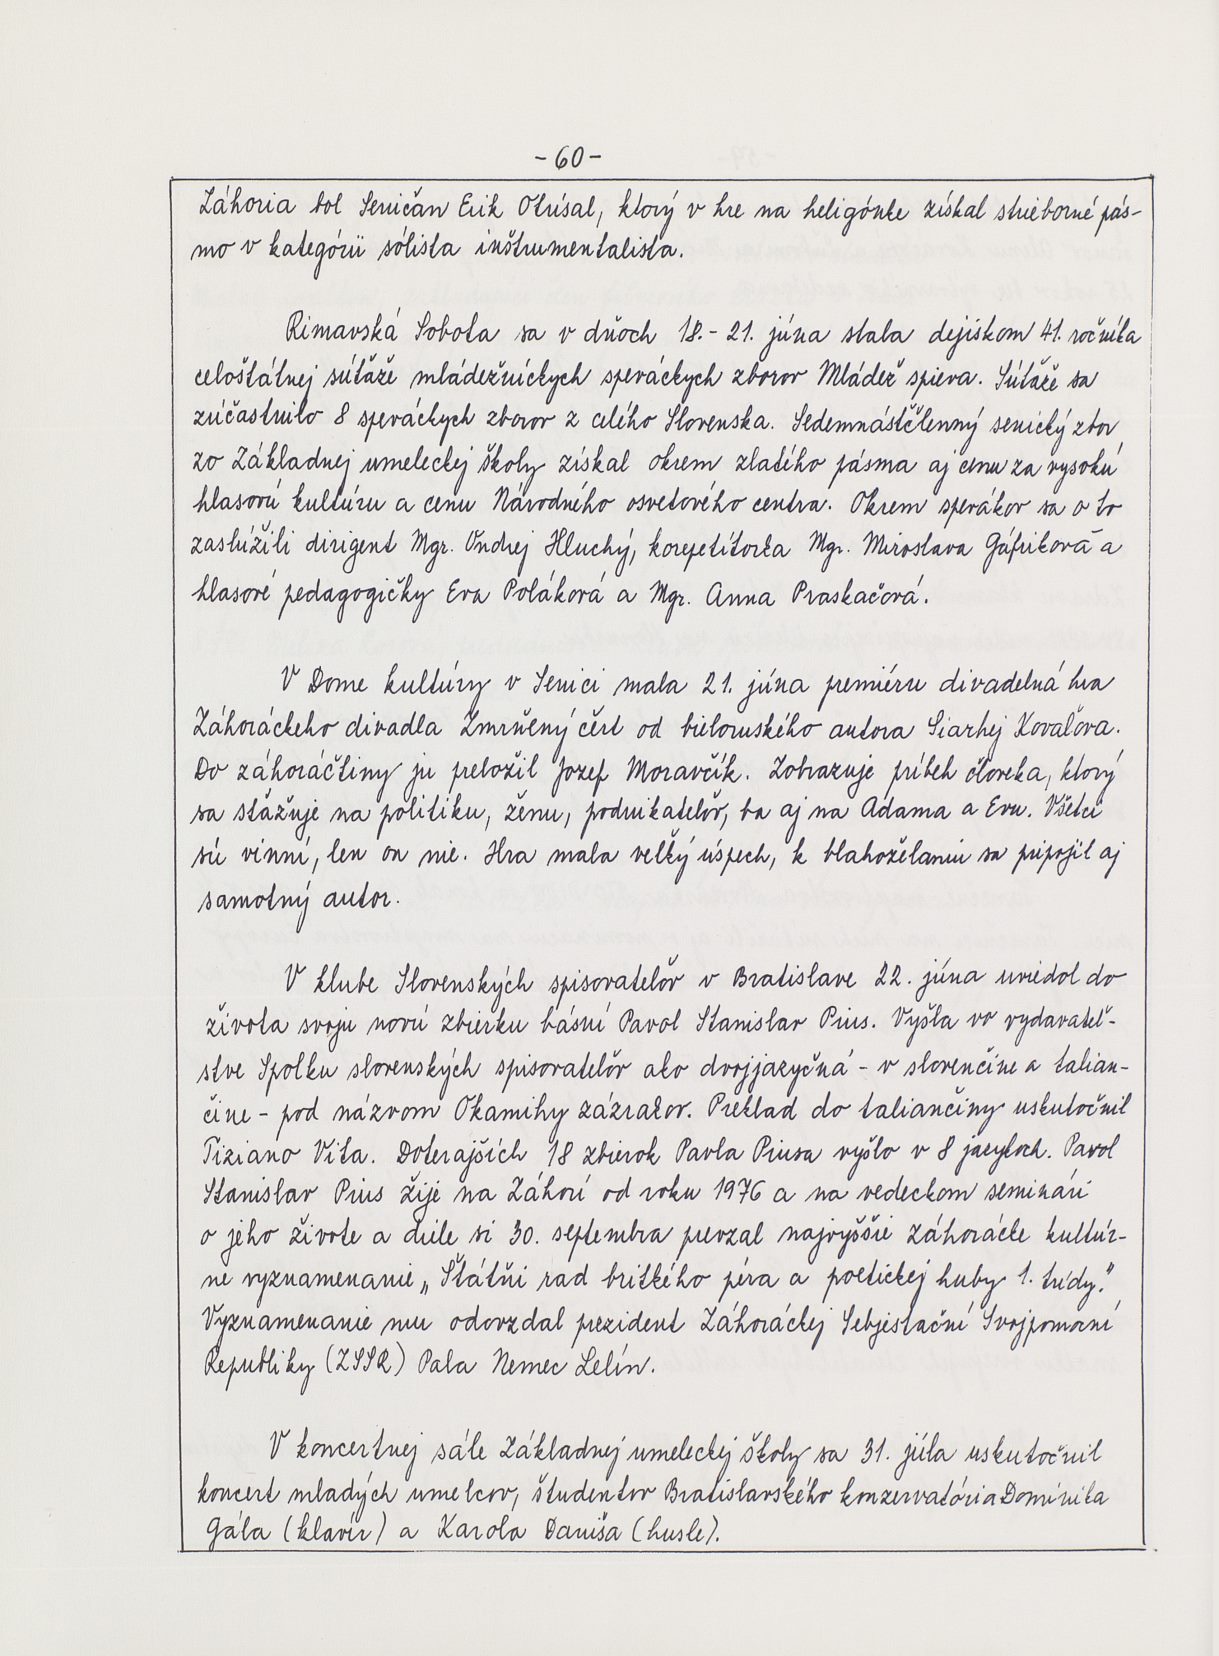 -60-
Záhoria bol Seničan Erik Otrísal, ktorý v hre na heligónke získal strieborné pás-
mo v kategórii sólista inštrumentalista.
Rimavská Sobota sa v dňoch 18.-21. júna stala dejiskom 41. ročníka
celoštátnej súťaže mládežníckych speváckych zborov Mládež spieva. Súťaže sa
zúčastnilo 8 speváckych zborov z celého Slovenska. Sedemnásťčlenný senický zbor
zo Základnej umeleckej školy získal okrem zlatého pásma aj cenu za vysokú
hlasovú kultúru a cenu Národného osvetového centra. Okrem spevákov sa o to
zaslúžili dirigent Mgr. Ondrej Hluchý, korepetítorka Mgr. Miroslava Gáfriková a
hlasové pedagogičky Eva Poláková a Mgr. Anna Praskačová.
V Dome kultúry v Senici mala 21. júna premiéru divadelná hra
Záhoráckeho divadla Zmrňený čért od bieloruského autora Siarhej Kovaľova.
Do záhoráčtiny ju preložil Jozef Moravčík. Zobrazuje príbeh človeka, ktorý
sa sťažuje na politiku, ženu, podnikateľov, ba aj na Adama a Evu. Všetci
sú vinní, len on nie. Hra mala veľký úspech, k blahoželaniu sa pripojil aj
samotný autor.
V klube Slovenských spisovateľov v Bratislave 22. júna uviedol do
života svoju novú zbierku básní Pavol Stanislav Pius. Vyšla vo vydavateľ-
stve Spolku slovenských spisovateľov ako dvojjazyčná - v slovenčine a talian-
čine - pod názvom Okamihy zázrakov. Preklad do taliančiny uskutočnil
Tiziano Vita. Doterajších 18 zbierok Pavla Piusa vyšlo v 8 jazykoch. Pavol
Stanislav Pius žije na Záhorí od roku 1976 a na vedeckom seminári
o jeho živote a diele si 30. septembra prevzal najvyššie záhorácke kultúr-
ne vyznamenanie „Štátňi rad britkého péra a poetickej huby 1. trídy."
Vyznamenanie mu odovzdal prezident Záhoráckej Sebjestační Svojpomocní
Republiky (ZSSR) Pala Nemec Lelín.
V koncertnej sále Základnej umeleckej školy sa 31. júla uskutočnil
koncert mladých umelcov, študentov Bratislavského konzervatória Dominika
Gála (klavír) a Karola Daniša (husle).